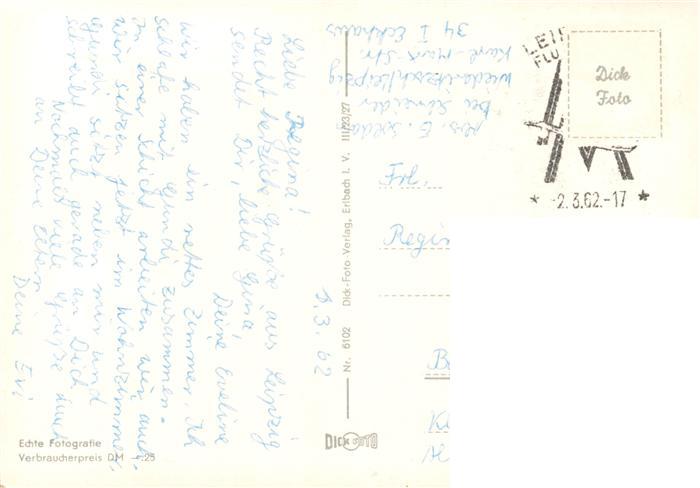 Liebe Regina!
Recht herzliche Grüße aus Leipzig
sendet Dir, liebe Gina,
Deine Eveline
Wir haben ein nettes Zimmer. Ich
schlafe mit Gundi zusammen.
In einer Schicht arbeiten wir auch.
Wir sitzen jetzt im Wohnzimmer,
Gundi sitzt neben mir und
schreibt auch gerade an Dich
Nochmals viele Grüße auch
an Deine Eltern
Deine Evi
3.3.62
Abs. E.
bei Schneider
Wiederitzsch/Leipzig
Karl-Marx-Str.
34 I Eckhaus
Nr. 6102 Dick-Foto-Verlag, Erlbach I. V. III/23/27
DICK FOTO
Echte Fotografie
Verbraucherpreis DM -.25
Dick
Foto
LEI
FLU
* -2.3.62.-17 *
Frl.
Regin
B
K